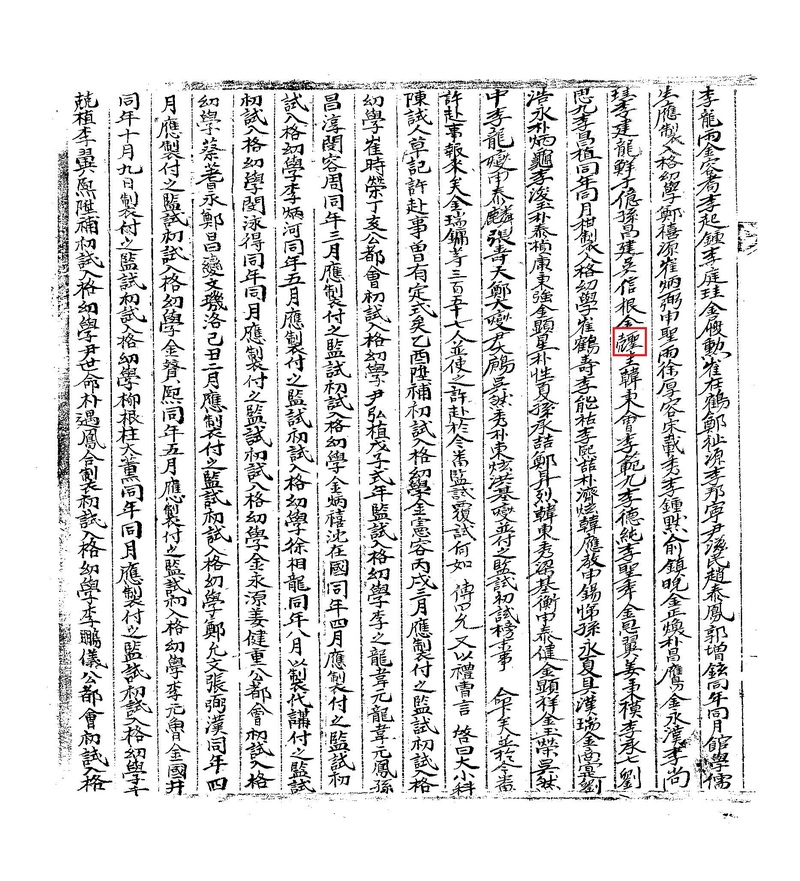 李龍雨金容喬李起鍾李庭珪金俊勳崔在鶴鄭祉源李邦寧尹滋民趙泰鳳郭增鉉同年同月館學儒
生應製入格幼學鄭禧源崔炳弼申聖雨徐厚容宋載秀李鍾默俞鎮晩金正煥朴昌鷹金永漳李尚
李建龍鮮于億孫昌建吳信根金 韓東會李範九李德純李聖華金思翼姜事模李承七劉
思九李昌植同年同月柑製入格幼學崔鶴壽李能祐李熙喆朴濟炫韓應敎申錫悌孫永夏具漢瑞金尚定劉
浩永朴炳龜李浚 朴泰楨康東強金顯星朴性夏孫承喆鄭耳烈韓東秀梁基衡申泰健金顯祥金玉榮吳
中李龍燮申泰麟張壽大鄭 燮尹 吳 秀朴東炫洪基燮並付之監試初試榜末事 命下矣並於今番
許赴事報來矣金瑞鏞等三百五十七人並使之許赴於今番監試覆試何如 傳曰允又以禮曹言 啓曰大小科
陳試人草記許赴事曾有定式矣乙酉陞補初試入格幼學金憲容丙戌三月應製付之監試初試入格
幼學崔時榮丁亥公都會初試入格幼學尹弘植戊子式年監試入格幼學李之龍韋元龍韋元鳳孫
昌淳閔容周同年三月應製付之監試初試入格幼學金炳禧沈在國同年四月應製付之監試初
試入格幼學李炳河同年五月應製付之監試初試入格幼學徐相龍同年八月以製代講付之監試
初試入格幼學閔泳得同年同月應製付之監試初試入格幼學金永源姜健重公都會初試入格
幼學蔡蓍永鄭昌燮文璣洛己丑二月應製付之監試初試入格幼學鄭允文張弼漢同年四
月應製付之監試初試入格幼學金贊熙同年五月應製付之監試初入格幼學李元魯金國井
同年十月九日製付之監試初試入格幼學柳根柱大薰同年同月應製付之監試初試入格幼學李
兢植李翼熙陞補初試入格幼學尹世命朴遇鳳合製初試入格幼學李鵬儀公都會初試入格